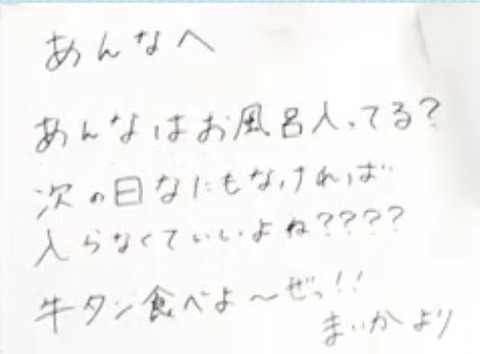 あんなへ
あんなはお風呂入ってる?
次の日なにもなければ
入らなくていいよね????
牛タン食べよ〜ぜっ!!
まいかより